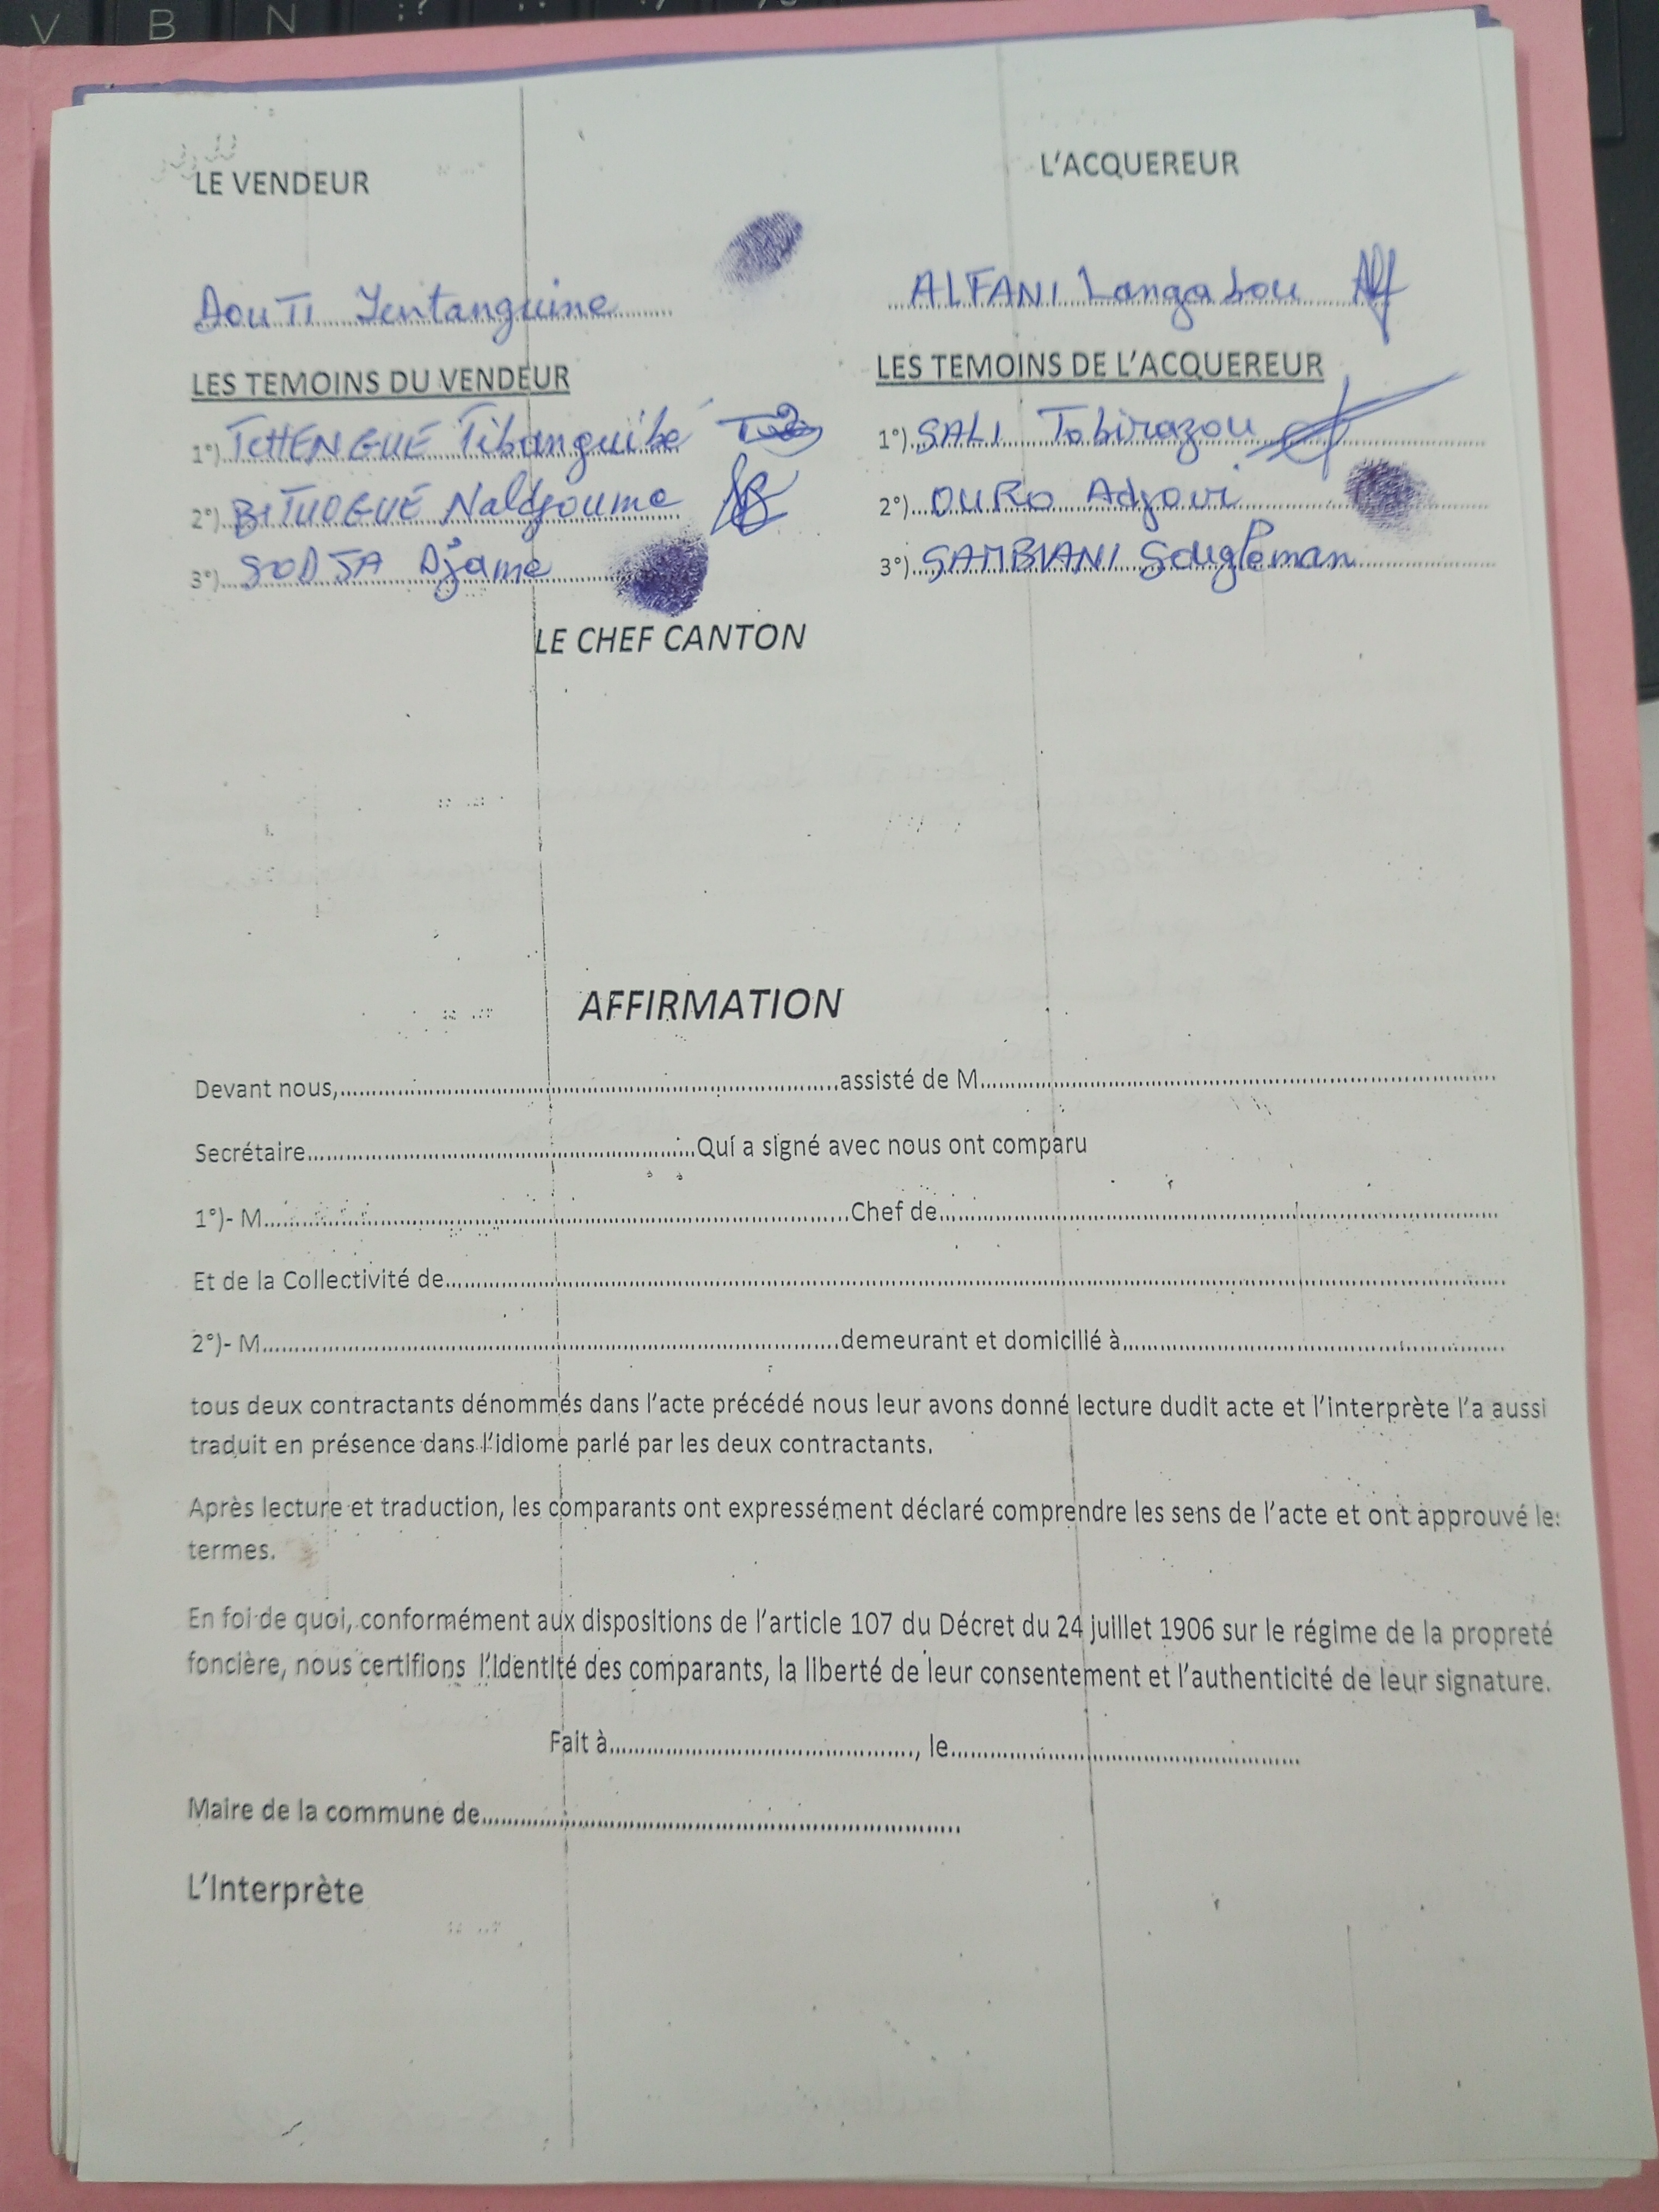 V B N ;? 
LE VENDEUR
L'ACQUEREUR
DOUTI Yentanguine
ALFANI Langabou
LES TEMOINS DU VENDEUR
LES TEMOINS DE L'ACQUEREUR
1°) TCHENGUE Tibanguibe
1°) SALI Tobirazou
2°) BITUOGUE Naldjoume
2°) OURO Adjovi
3°) SODJA Djame
3°) SAMBIANI Sougleman
LE CHEF CANTON
AFFIRMATION
Devant nous,........assisté de M........
Secrétaire........Qui a signé avec nous ont comparu
1°)- M........Chef de........
Et de la Collectivité de........
2°)- M........demeurant et domicilié à........
tous deux contractants dénommés dans l'acte précédé nous leur avons donné lecture dudit acte et l'interprète l'a aussi
traduit en présence dans l'idiome parlé par les deux contractants.
Après lecture et traduction, les comparants ont expressément déclaré comprendre les sens de l'acte et ont approuvé le
termes.
En foi de quoi, conformément aux dispositions de l'article 107 du Décret du 24 juillet 1906 sur le régime de la propreté
foncière, nous certifions l'identité des comparants, la liberté de leur consentement et l'authenticité de leur signature.
Fait à........, le........
Maire de la commune de........
L'Interprète